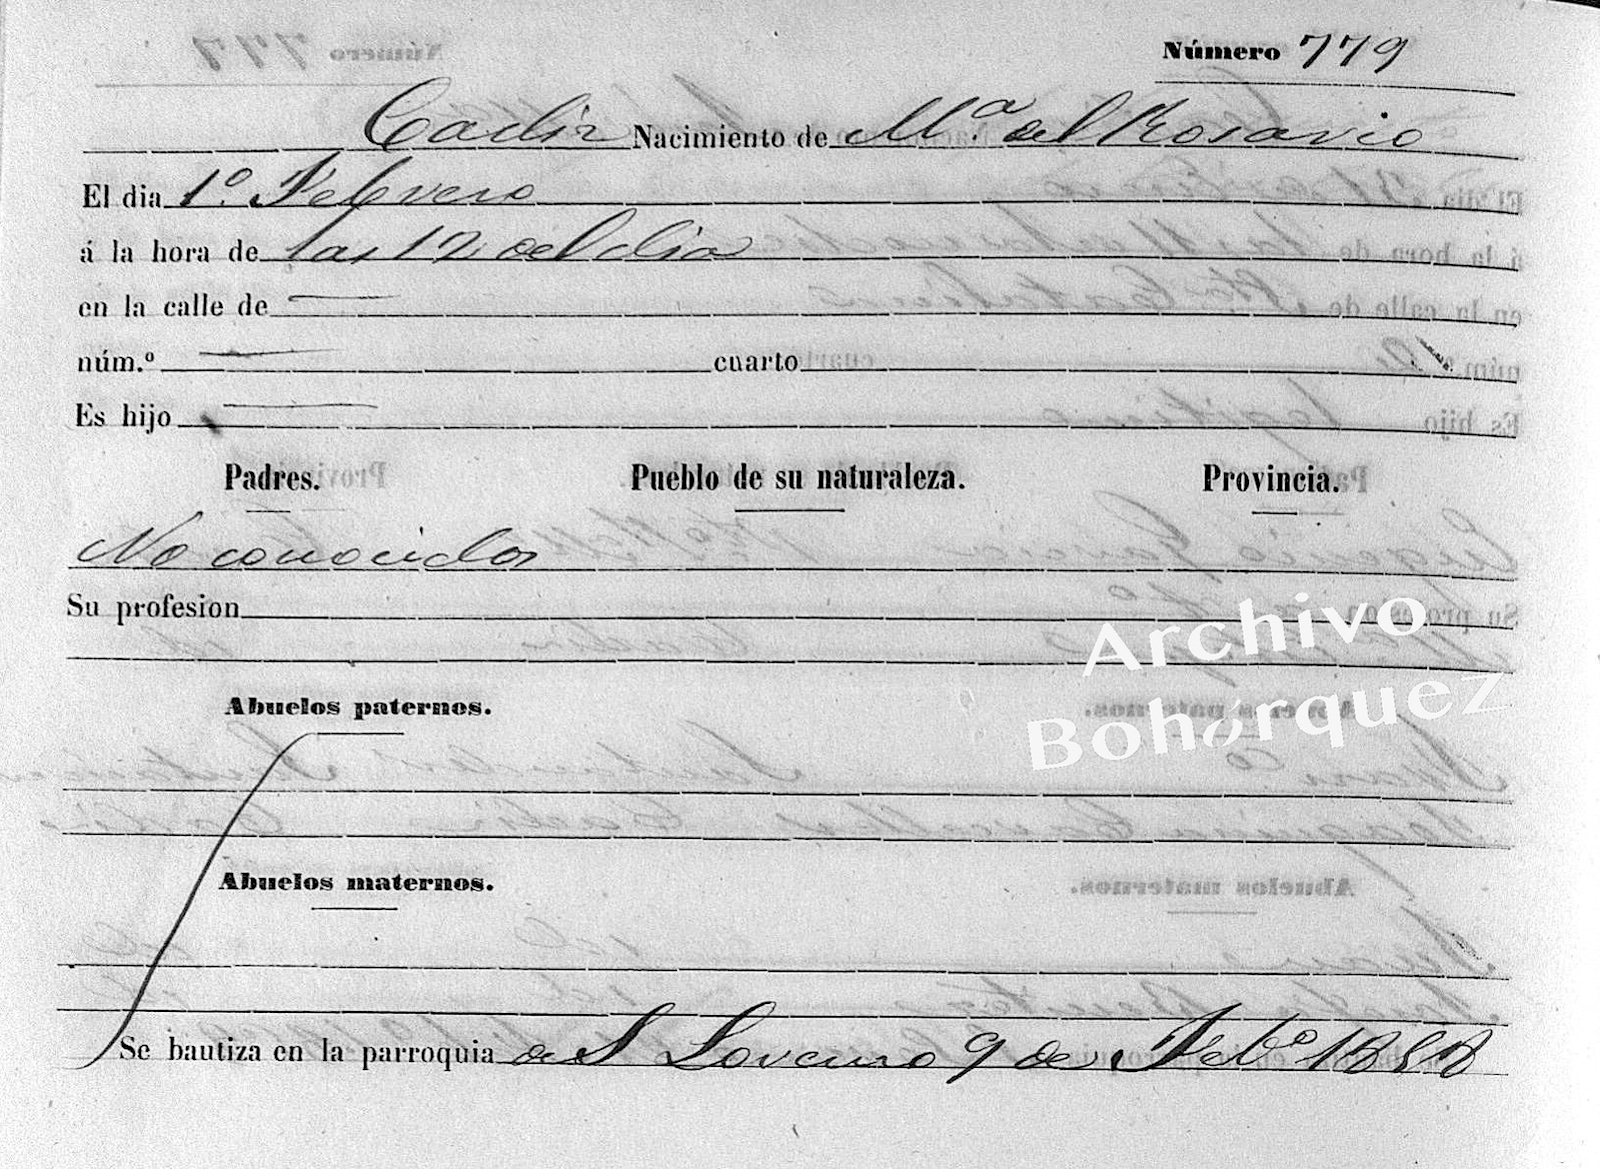 Número 779
Cadiz Nacimiento de Mª del Rosario
El dia 1º. Febrero
á la hora de las 12 del dia
en la calle de
núm.º cuarto
Es hijo
Padres. Pueblo de su naturaleza. Provincia.
No conocidos
Su profesion
Archivo
Bohórquez
Abuelos paternos.
Abuelos maternos.
Se bautiza en la parroquia de S Lorenzo 9 de Febº 1858